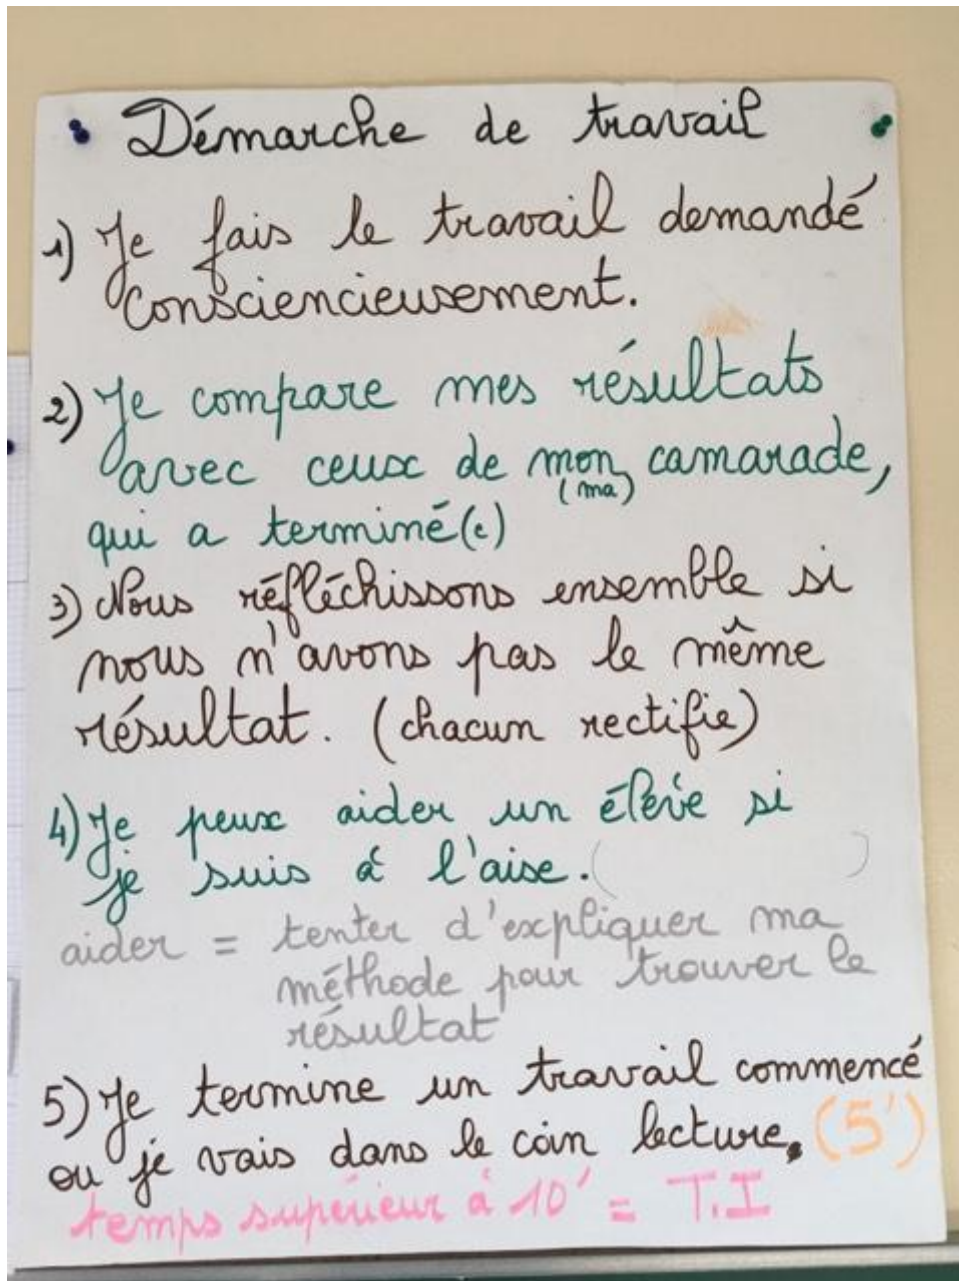 Démarche de travail
1) Je fais le travail demandé
consciencieusement.
2) Je compare mes résultats
avec ceux de mon camarade,
(ma)
qui a terminé(e)
3) Nous réfléchissons ensemble si
nous n'avons pas le même
résultat. (chacun rectifie)
4) Je peux aider un élève si
je suis à l'aise. ( )
aider = tenter d'expliquer ma
méthode pour trouver le
résultat
5) Je termine un travail commencé
ou je vais dans le coin lecture. (5')
temps supérieur à 10' = T.I